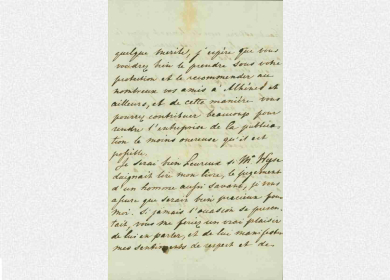 quelque merite, j'espère que vous
voudrez bien le prendre sous votre
protection et le recommander au
nombreux vos amis à Athènes et
ailleurs, et de cette manière vous
pourrez contribuer beaucoup pour
rendre l'entreprise de la publica-
tion le moins onereuse qu'il est
possible.
Je serai bien heureux si Mr Wyse
daignait lire mon livre, le jugement
d'un homme aussi savant, je vous
assure que serais bien precieux pour
moi. Si jamais l'occasion se presen-
tait, vous me feriez un vrai plaisir
de lui en parler, et de lui manifester
mes sentiments de respect et de-